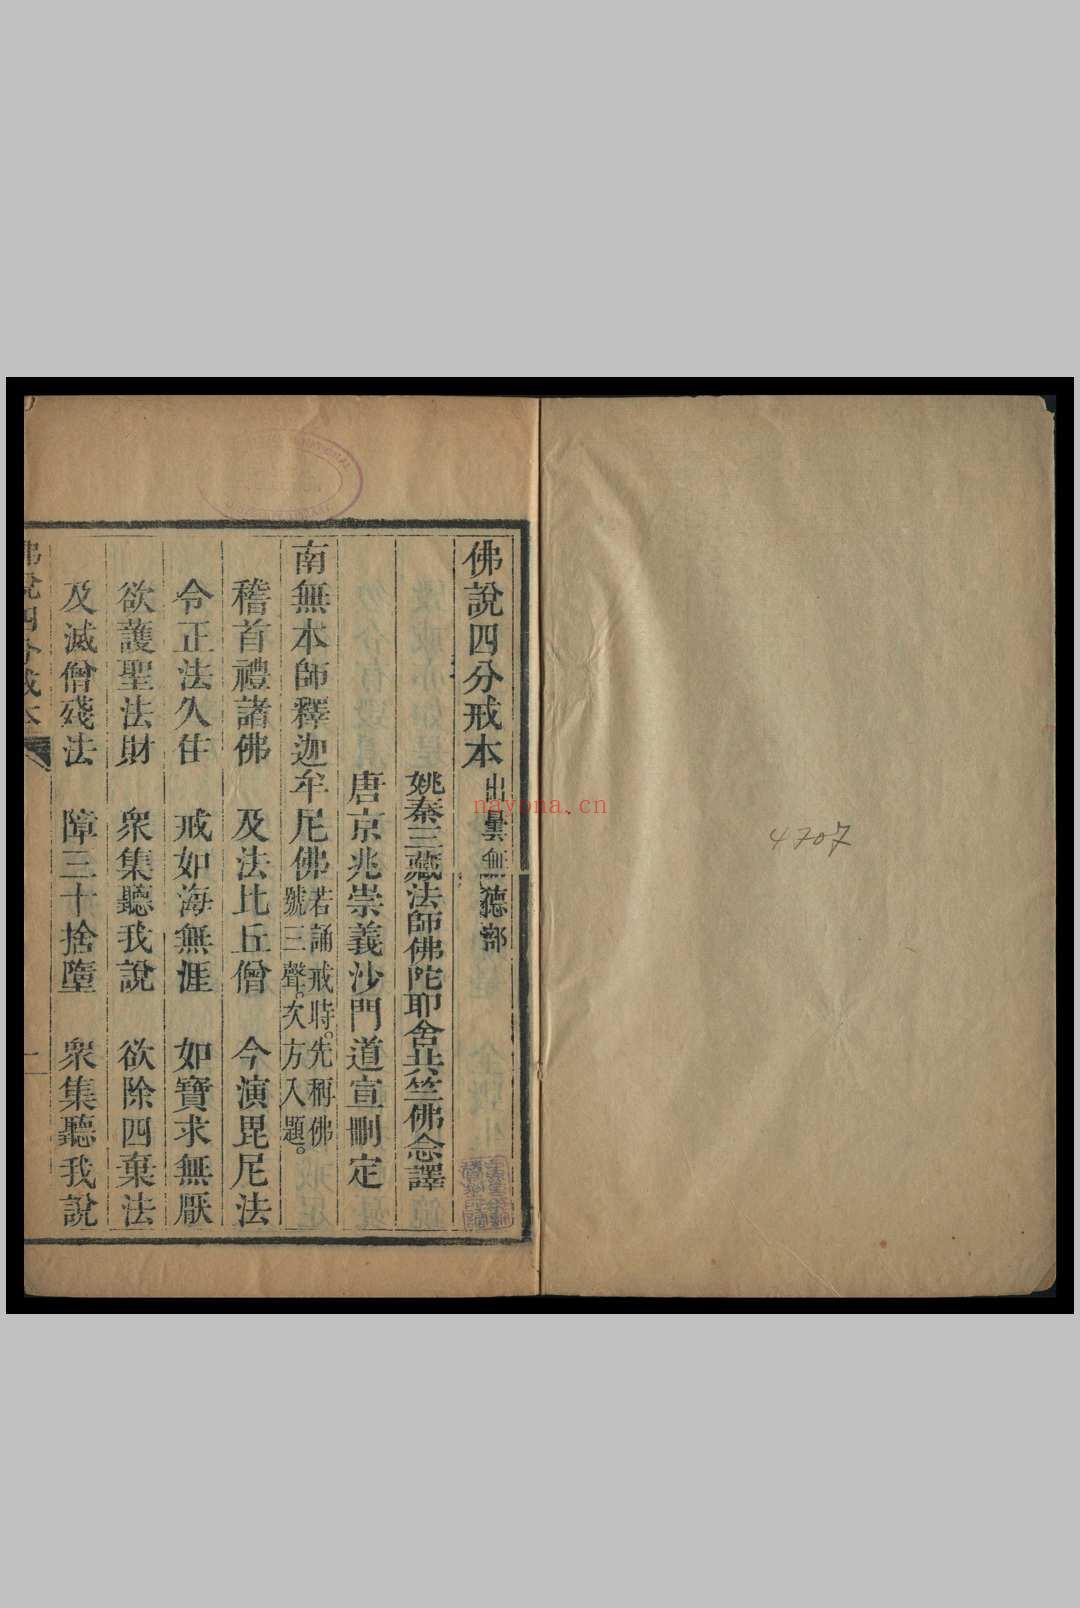 佛說四分戒本 出曇無德部
姚秦三藏法師佛陀耶舍共竺佛念譯
唐京兆崇義沙門道宣刪定
南無本師釋迦牟尼佛 若誦戒時。先稱佛
號三聲。次方入題。
稽首禮諸佛 及法比丘僧 今演毘尼法
令正法久住 戒如海無涯 如寶求無厭
欲護聖法財 眾集聽我說 欲除四棄法
及滅僧殘法 障三十捨墮 眾集聽我說
佛說四分戒本
一
4707
nayona.cn